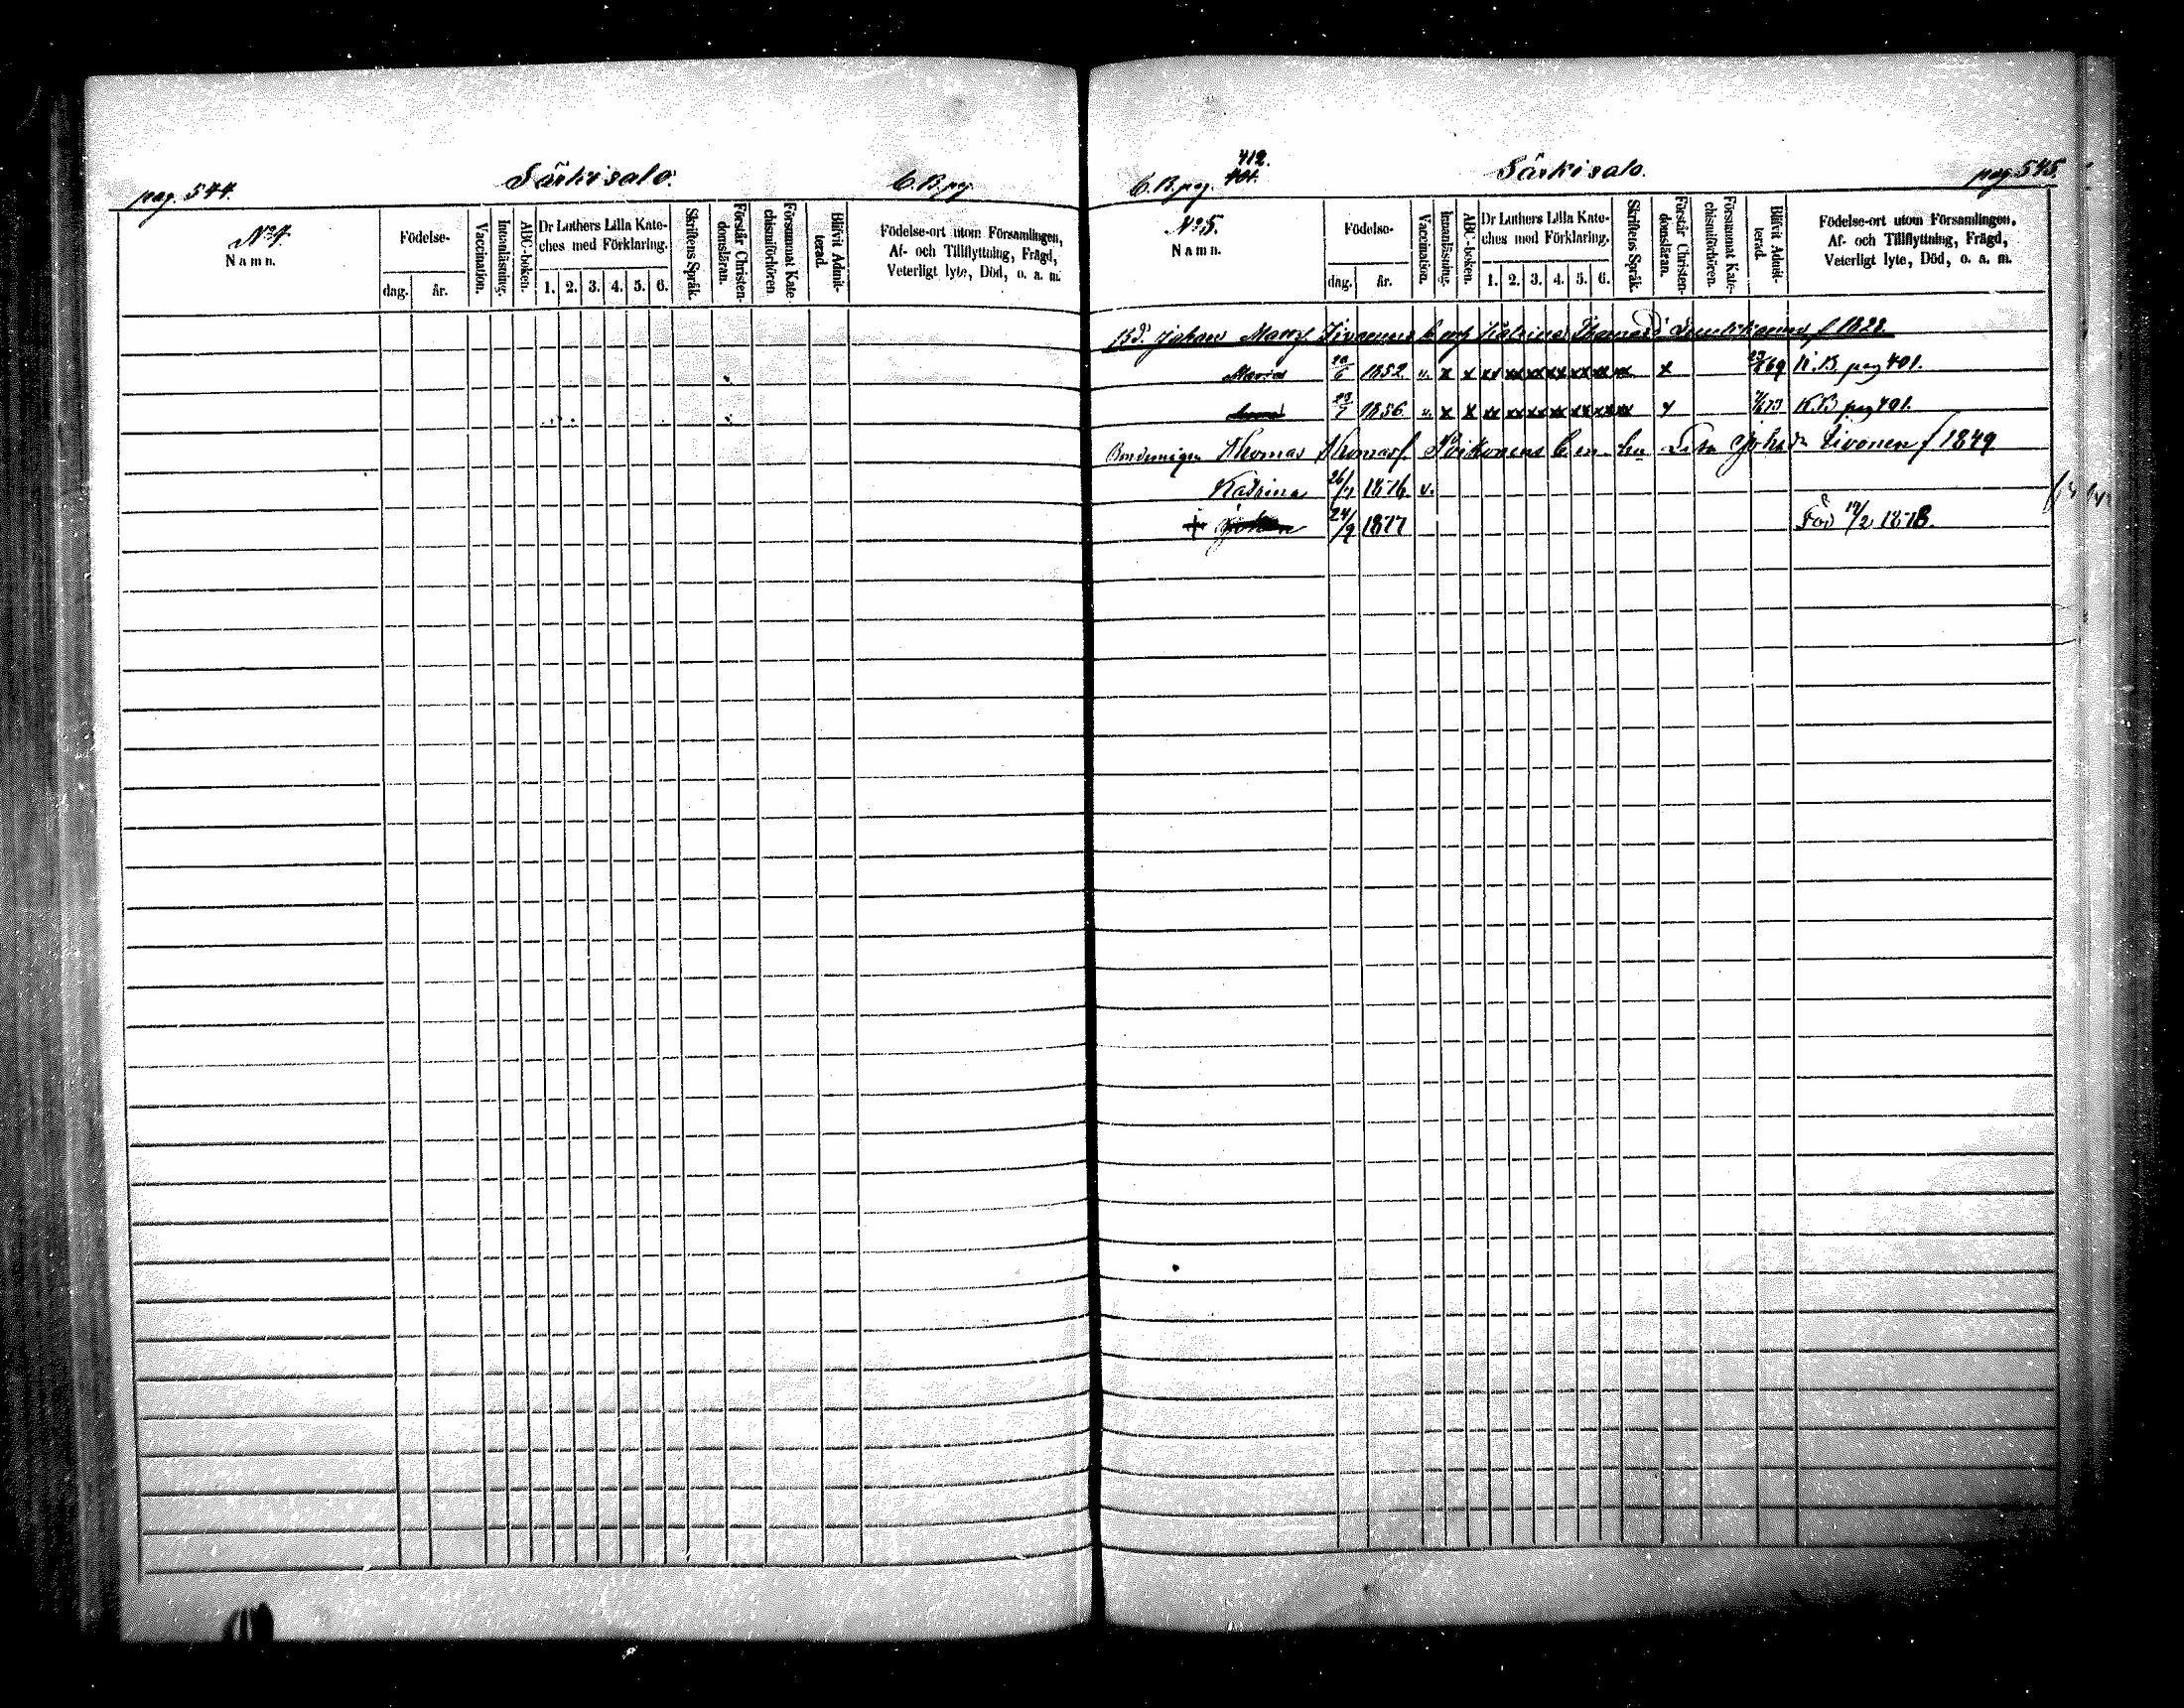 pag. 544.
Särkisalo.
C.B. pag.
No 4.
Namn.
Födelse-
dag. år.
Vaccination.
Innanläsning.
ABC-boken.
Dr Luthers Lilla Kate-
ches med Förklaring.
1. 2. 3. 4. 5. 6.
Skriftens Språk.
Förstår Christen-
domsläran.
Försummat Kate-
chismiförhören
Blifvit Admit-
terad.
Födelse-ort utom Församlingen,
Af- och Tillflyttning, Frägd,
Veterligt lyte, Död, o. a. m.
412.
C.B. pag. 401.
Särkisalo.
pag. 545.
No 5.
Namn.
Födelse-
dag. år.
Vaccination.
Innanläsning.
ABC-boken.
Dr Luthers Lilla Kate-
ches med Förklaring.
1. 2. 3. 4. 5. 6.
Skriftens Språk.
Förstår Christen-
domsläran.
Försummat Kate-
chismiförhören.
Blifvit Admit-
terad.
Födelse-ort utom Församlingen,
Af- och Tillflyttning, Frägd,
Veterligt lyte, Död, o. a. m.
Bd. Johan Matts. Katrina f 1828.
Maria 1852. v. x x xx xx xx xx xx xx x K.B. pag 401.
1856 v. x x xx xx xx xx xx xx x K.B pag 401.
Thomas Thomass. Lisa Joh. dr Sivonen f 1849
Katrina 26/7 1876 v.
+ Johan 24/9 1877 Död 17/2 1878.